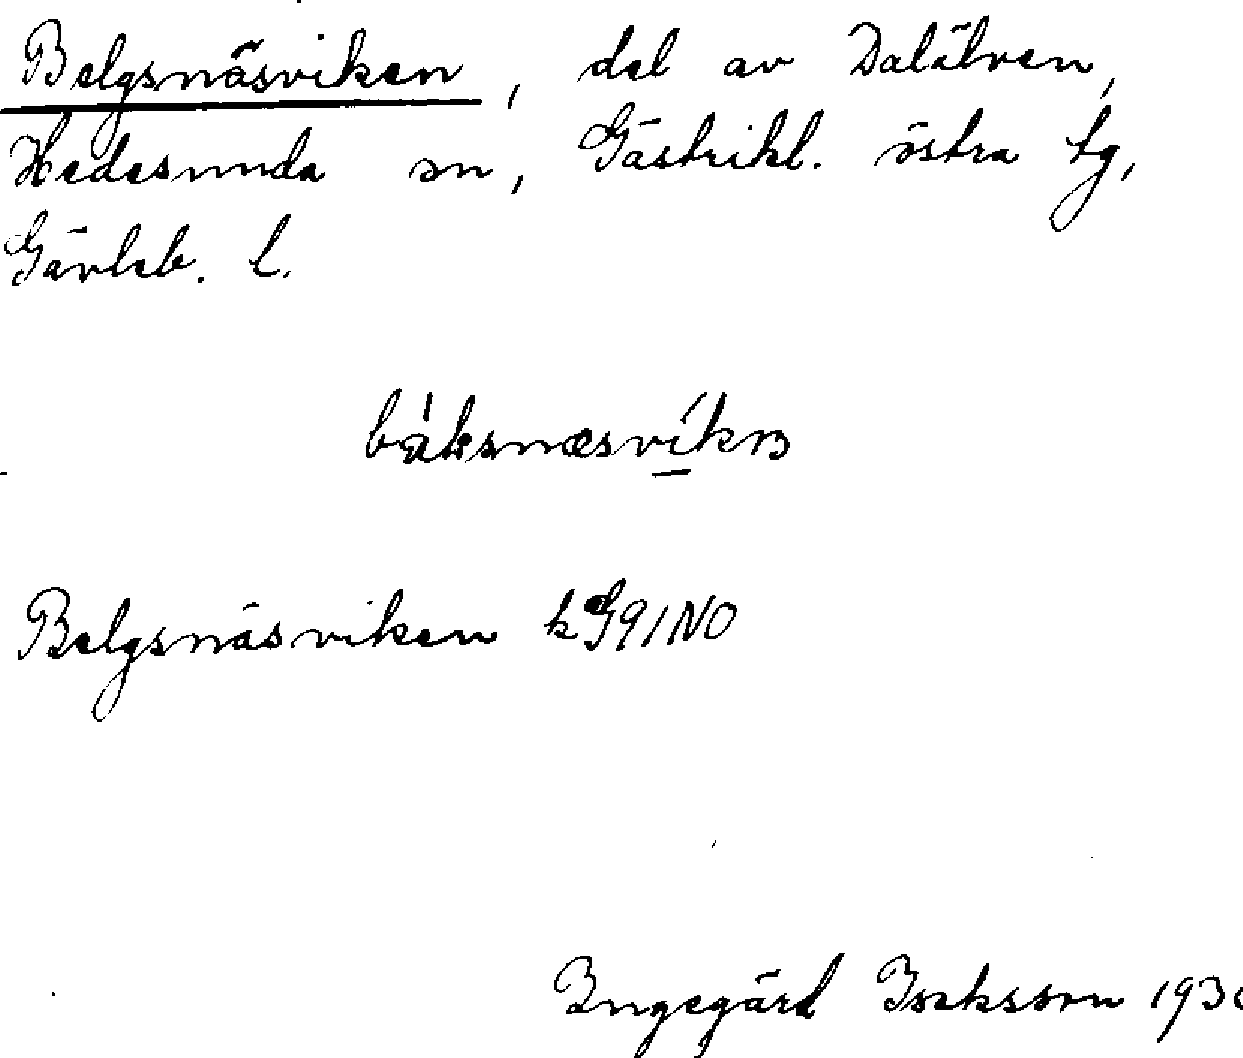 Belgsnäsviken, del av Dalälven,
Hedesunda sn, Gästrikl. östra tg,
Gävleb. l.
Belgsnäsviken k G91NO
Ingegärd Isaksson